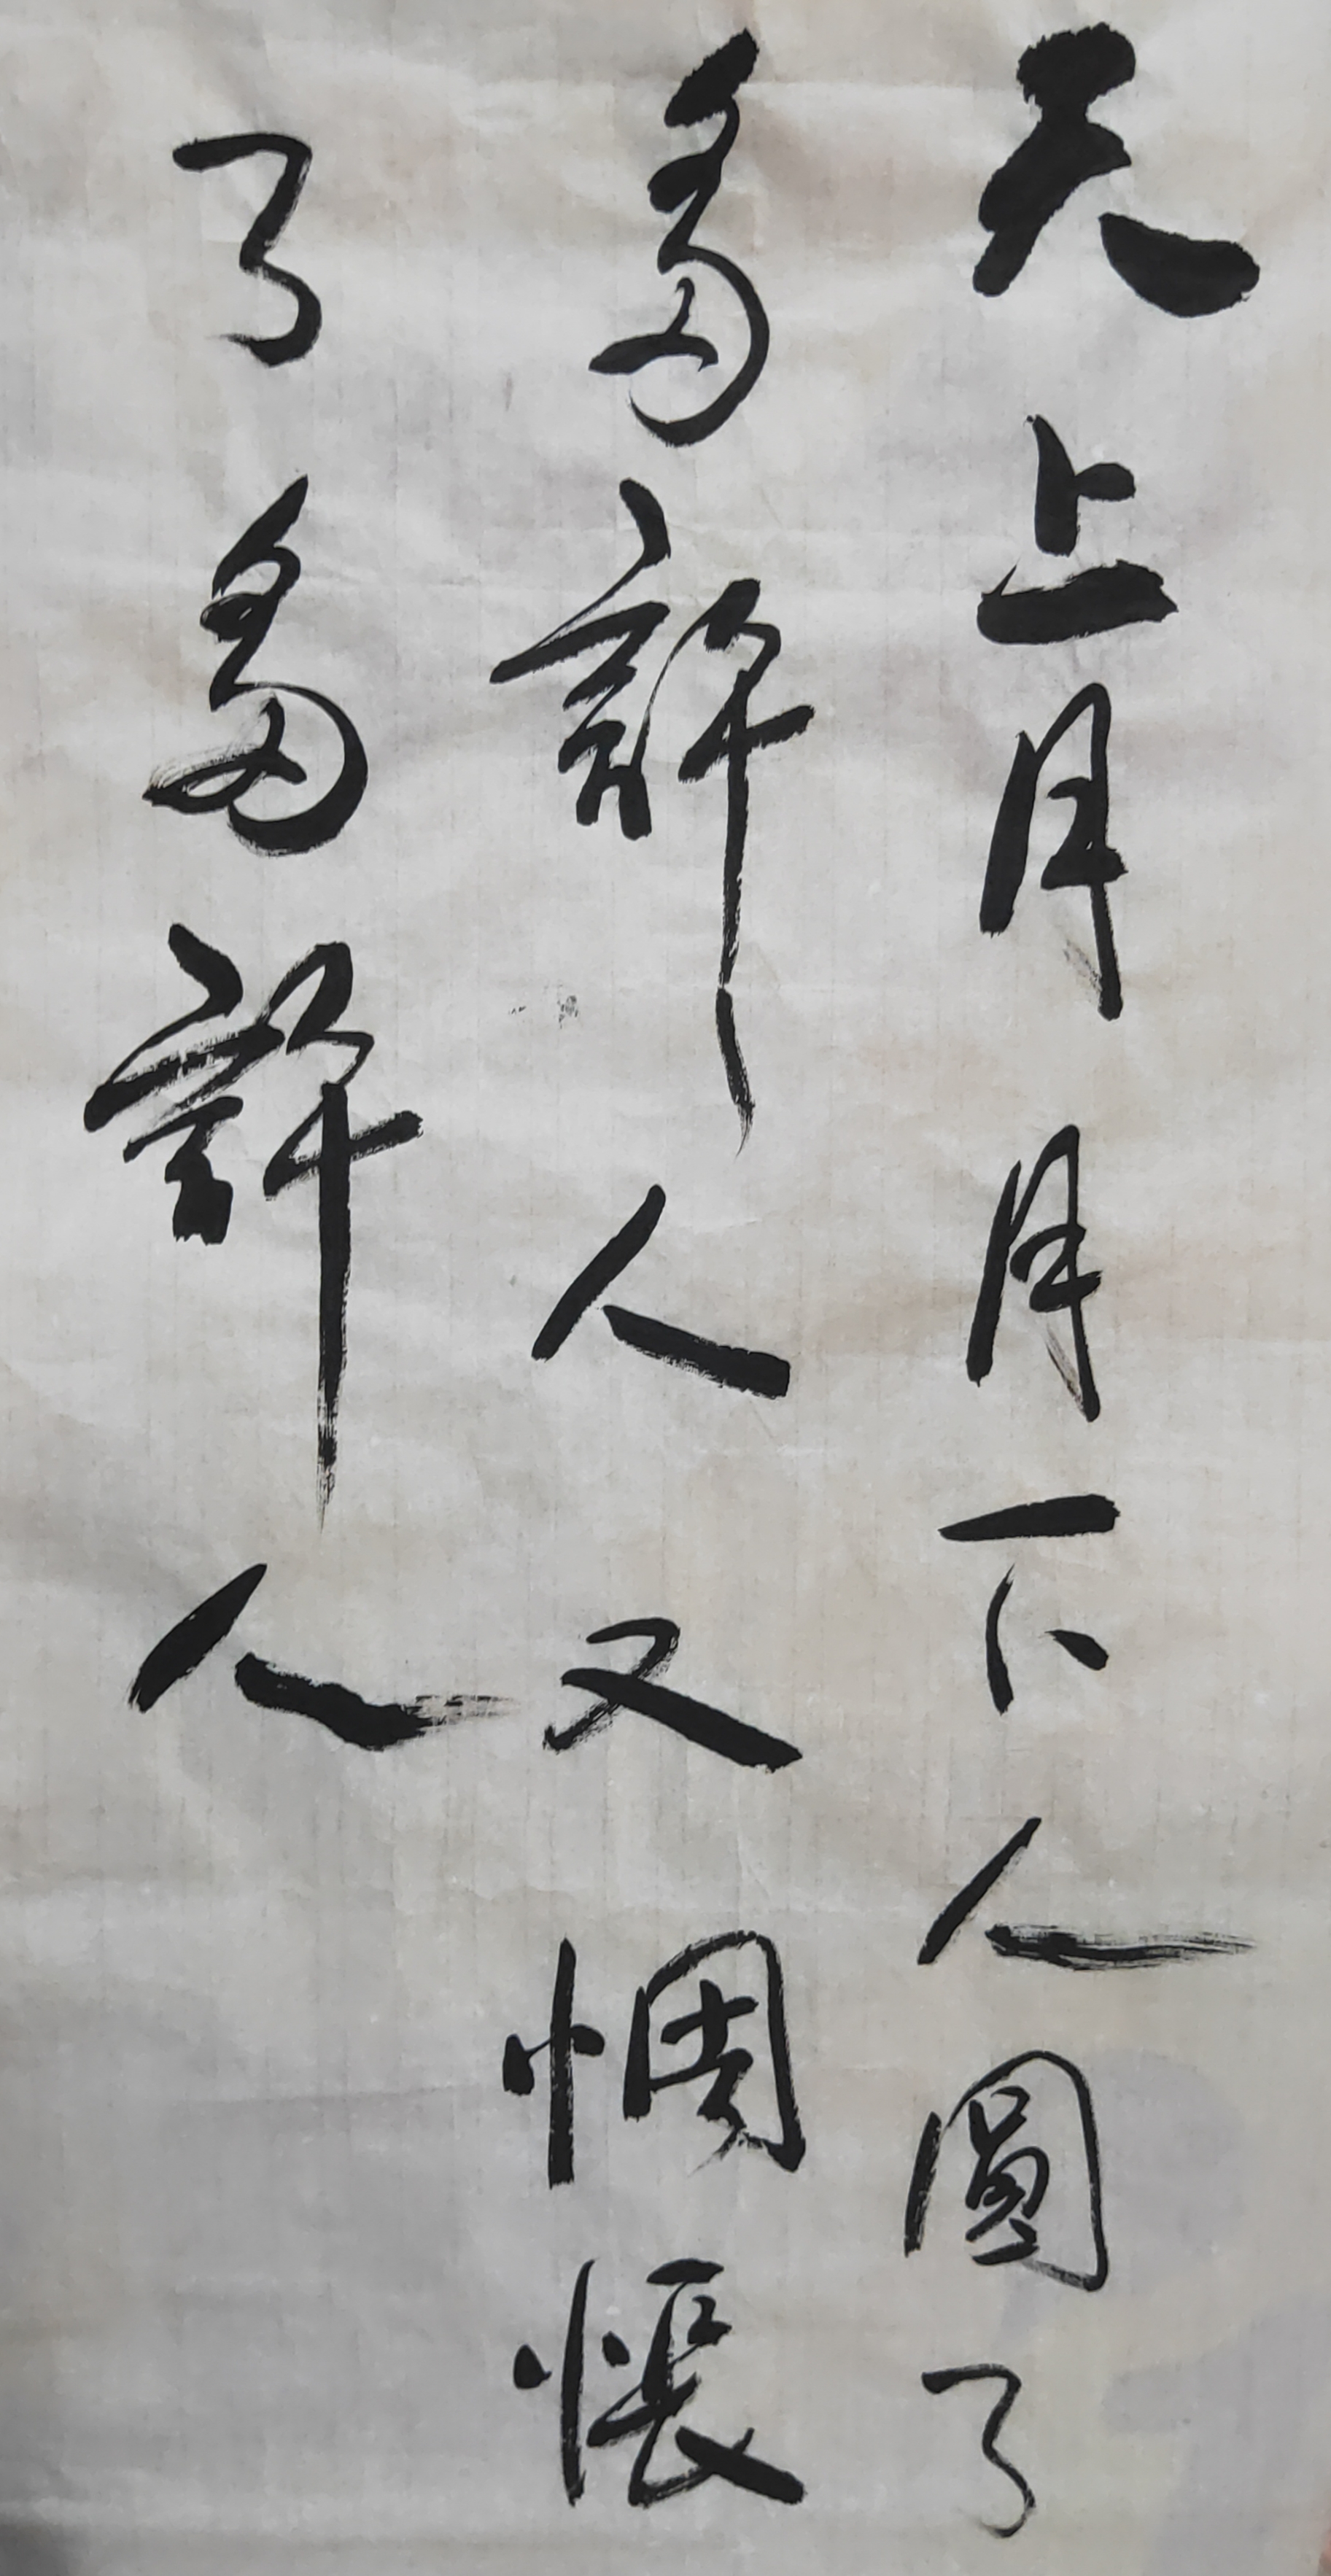 天上月月下人圓了
多許人又惆悵
了多許人